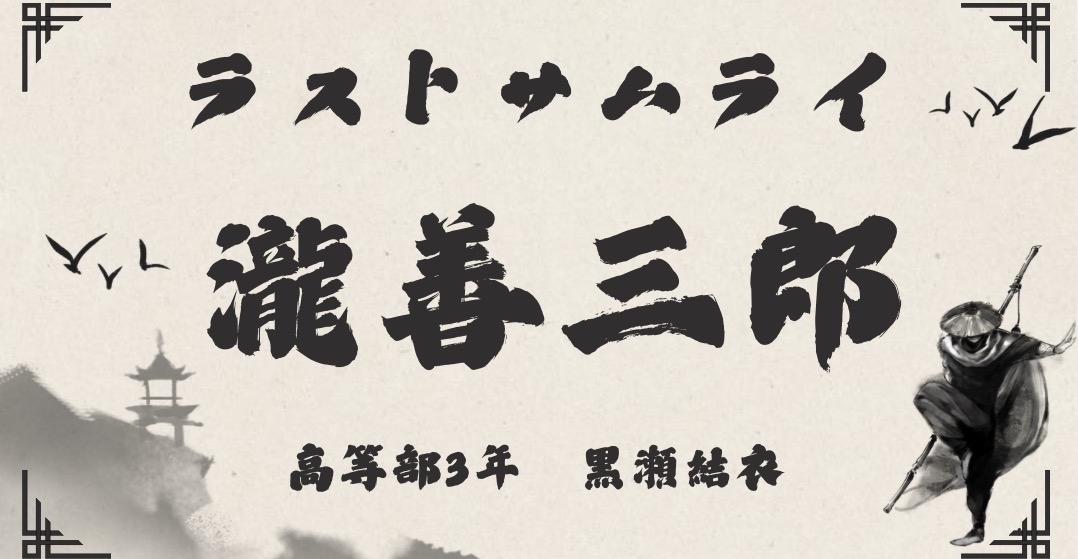 ラストサムライ
瀧善三郎
高等部3年　黒瀬結衣